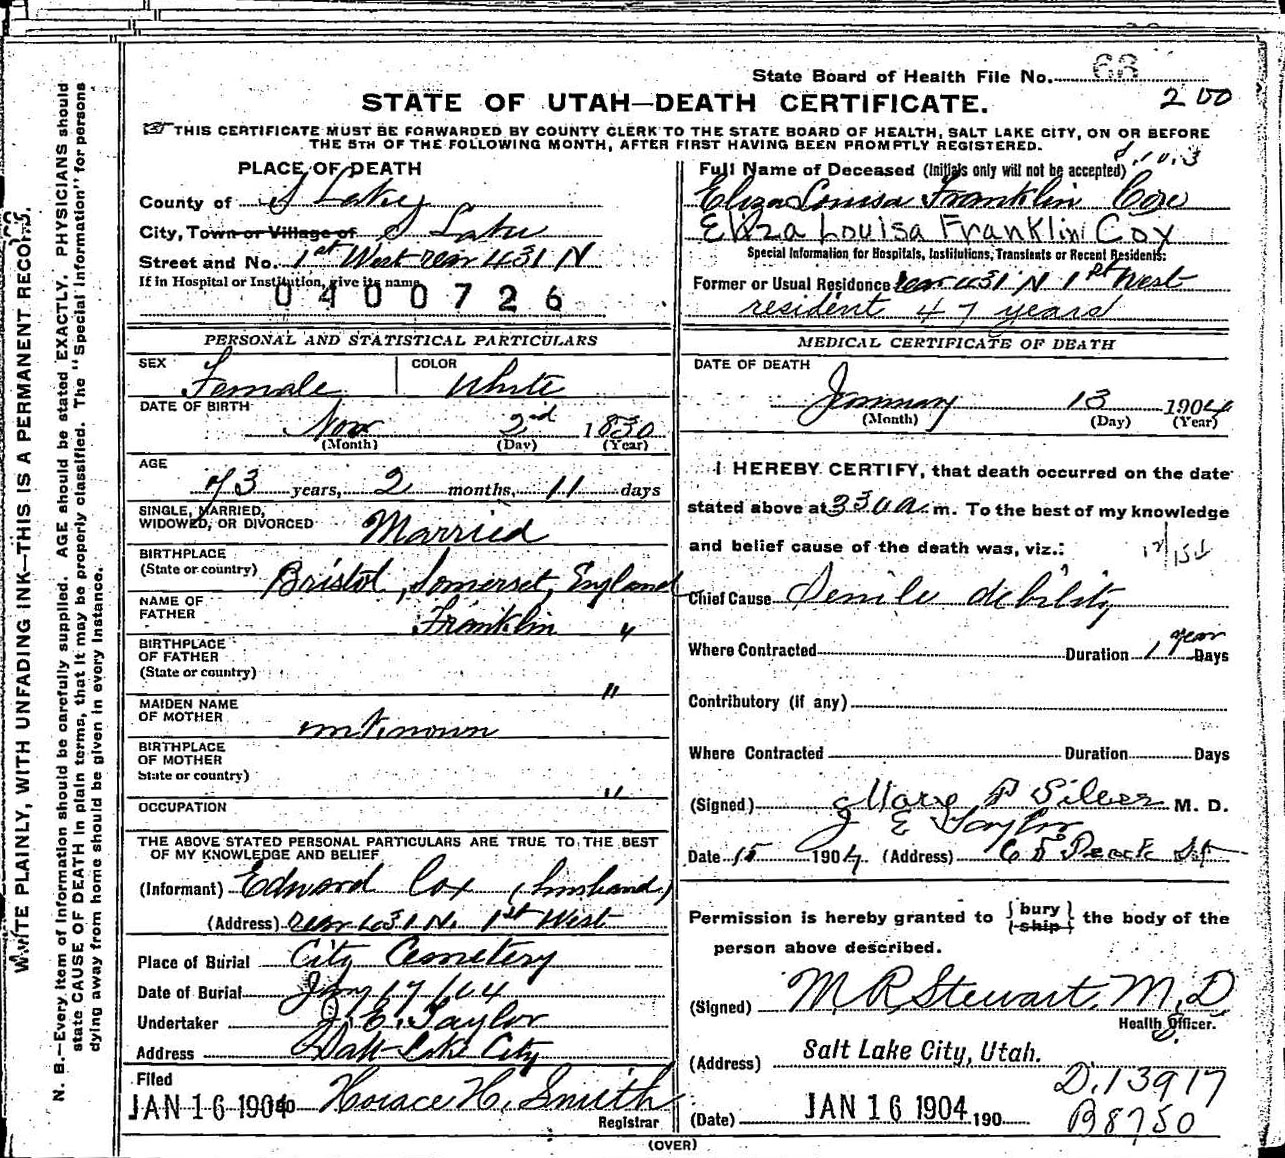 State Board of Health File No. 63
200
STATE OF UTAH—DEATH CERTIFICATE.
THIS CERTIFICATE MUST BE FORWARDED BY COUNTY CLERK TO THE STATE BOARD OF HEALTH, SALT LAKE CITY, ON OR BEFORE
THE 5TH OF THE FOLLOWING MONTH, AFTER FIRST HAVING BEEN PROMPTLY REGISTERED.
PLACE OF DEATH
County of S Lake
City, Town or Village of S Lake
Street and No. 1st West rear 431 N
If in Hospital or Institution, give its name
0400726
Full Name of Deceased (Initials only will not be accepted)
Eliza Louisa Franklin Cox
Eliza Louisa Franklin Cox
Special Information for Hospitals, Institutions, Transients or Recent Residents:
Former or Usual Residence rear 431 N 1st West
resident 47 years
PERSONAL AND STATISTICAL PARTICULARS
SEX Female COLOR White
DATE OF BIRTH
Nov 2nd 1830
(Month) (Day) (Year)
AGE
73 years, 2 months, 11 days
SINGLE, MARRIED,
WIDOWED, OR DIVORCED Married
BIRTHPLACE
(State or country) Bristol, Somerset, England
NAME OF
FATHER Franklin "
BIRTHPLACE
OF FATHER
(State or country) "
MAIDEN NAME
OF MOTHER unknown
BIRTHPLACE
OF MOTHER
State or country) "
OCCUPATION
THE ABOVE STATED PERSONAL PARTICULARS ARE TRUE TO THE BEST
OF MY KNOWLEDGE AND BELIEF
(Informant) Edward Cox (husband)
(Address) rear 431 N. 1st West
Place of Burial City Cemetery
Date of Burial Jan 17/04
Undertaker J. E. Taylor
Address Salt Lake City
Filed
JAN 16 1904 190 Horace H. Smith
Registrar
MEDICAL CERTIFICATE OF DEATH
DATE OF DEATH
January 13 1904
(Month) (Day) (Year)
I HEREBY CERTIFY, that death occurred on the date
stated above at 330 a. m. To the best of my knowledge
and belief cause of the death was, viz.:
Chief Cause Senile debility
Where Contracted Duration 1 year Days
Contributory (if any)
Where Contracted Duration Days
(Signed) M. D.
E Taylor
Date 15 1904 (Address)
Permission is hereby granted to {bury} the body of the
{ship}
person above described.
(Signed) M R Stewart, M, D
Health Officer.
(Address) Salt Lake City, Utah.
D.13917
(Date) JAN 16 1904 190
B8750
(OVER)
WRITE PLAINLY, WITH UNFADING INK—THIS IS A PERMANENT RECORD.
N. B.—Every item of information should be carefully supplied. AGE should be stated EXACTLY. PHYSICIANS should
state CAUSE OF DEATH in plain terms, that it may be properly classified. The "Special Information" for persons
dying away from home should be given in every instance.